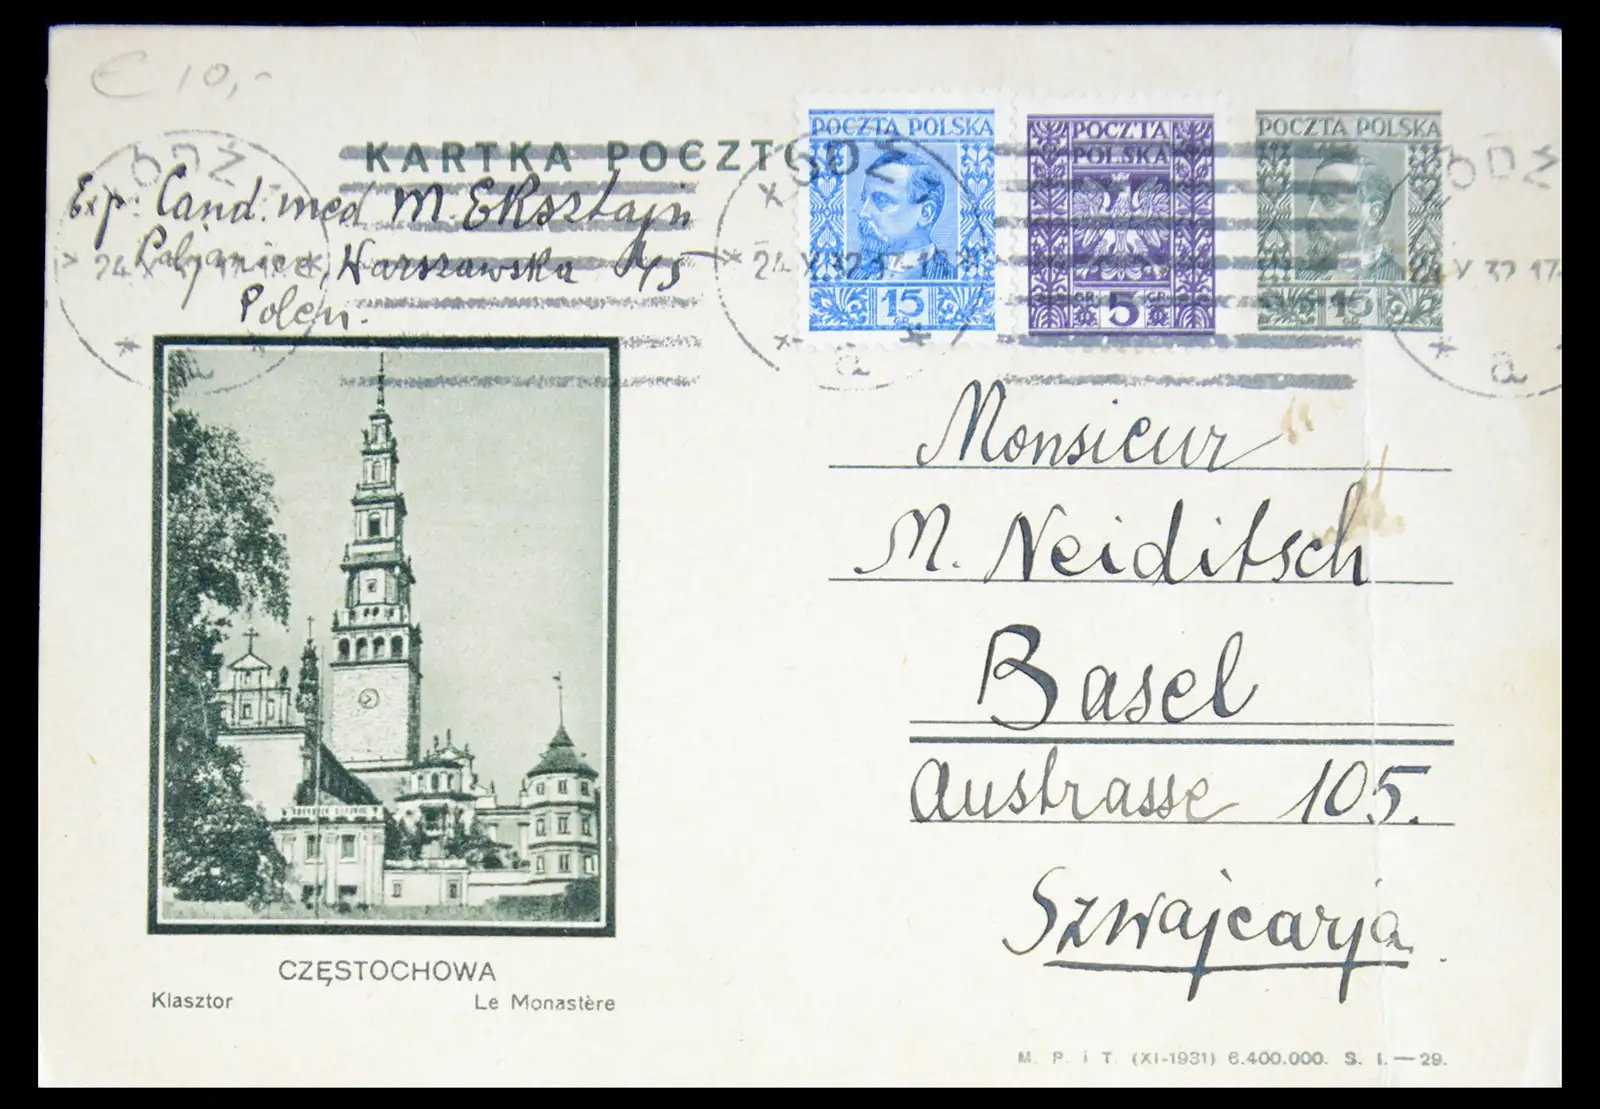 € 10,-
KARTKA POCZT
Exp. Cand. med M. Eksztajn
Pabjanice, Warszawska
Polen.
POCZTA POLSKA
15
POCZTA
POLSKA
GR. 5 GR.
POCZTA POLSKA
15
24 V 32 17
a
Monsieur
M. Neiditsch
Basel
Austrasse 105.
Szwajcarja.
CZĘSTOCHOWA
Klasztor Le Monastère
M. P. i T. (XI-1931) 6.400.000. S. I.—29.